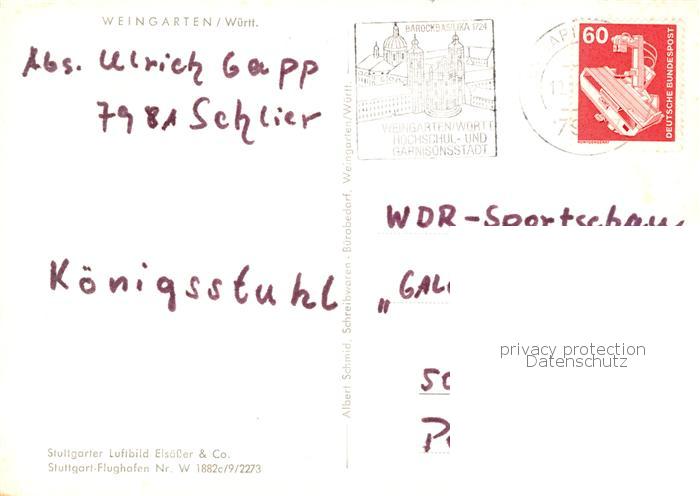 WEINGARTEN / Württ.
Abs. Ulrich Gapp
7981 Schlier
Königsstuhl
Stuttgarter Luftbild Elsäßer & Co.
Stuttgart-Flughafen Nr. W 1882c/9/2273
Albert Schmid, Schreibwaren - Bürobedarf, Weingarten/Württ.
BAROCKBASILIKA 1724
WEINGARTEN/WÜRTT
HOCHSCHUL- UND
GARNISONSSTADT
60
DEUTSCHE BUNDESPOST
RÖNTGENGERÄT
WDR-Sportschau
privacy protection
Datenschutz